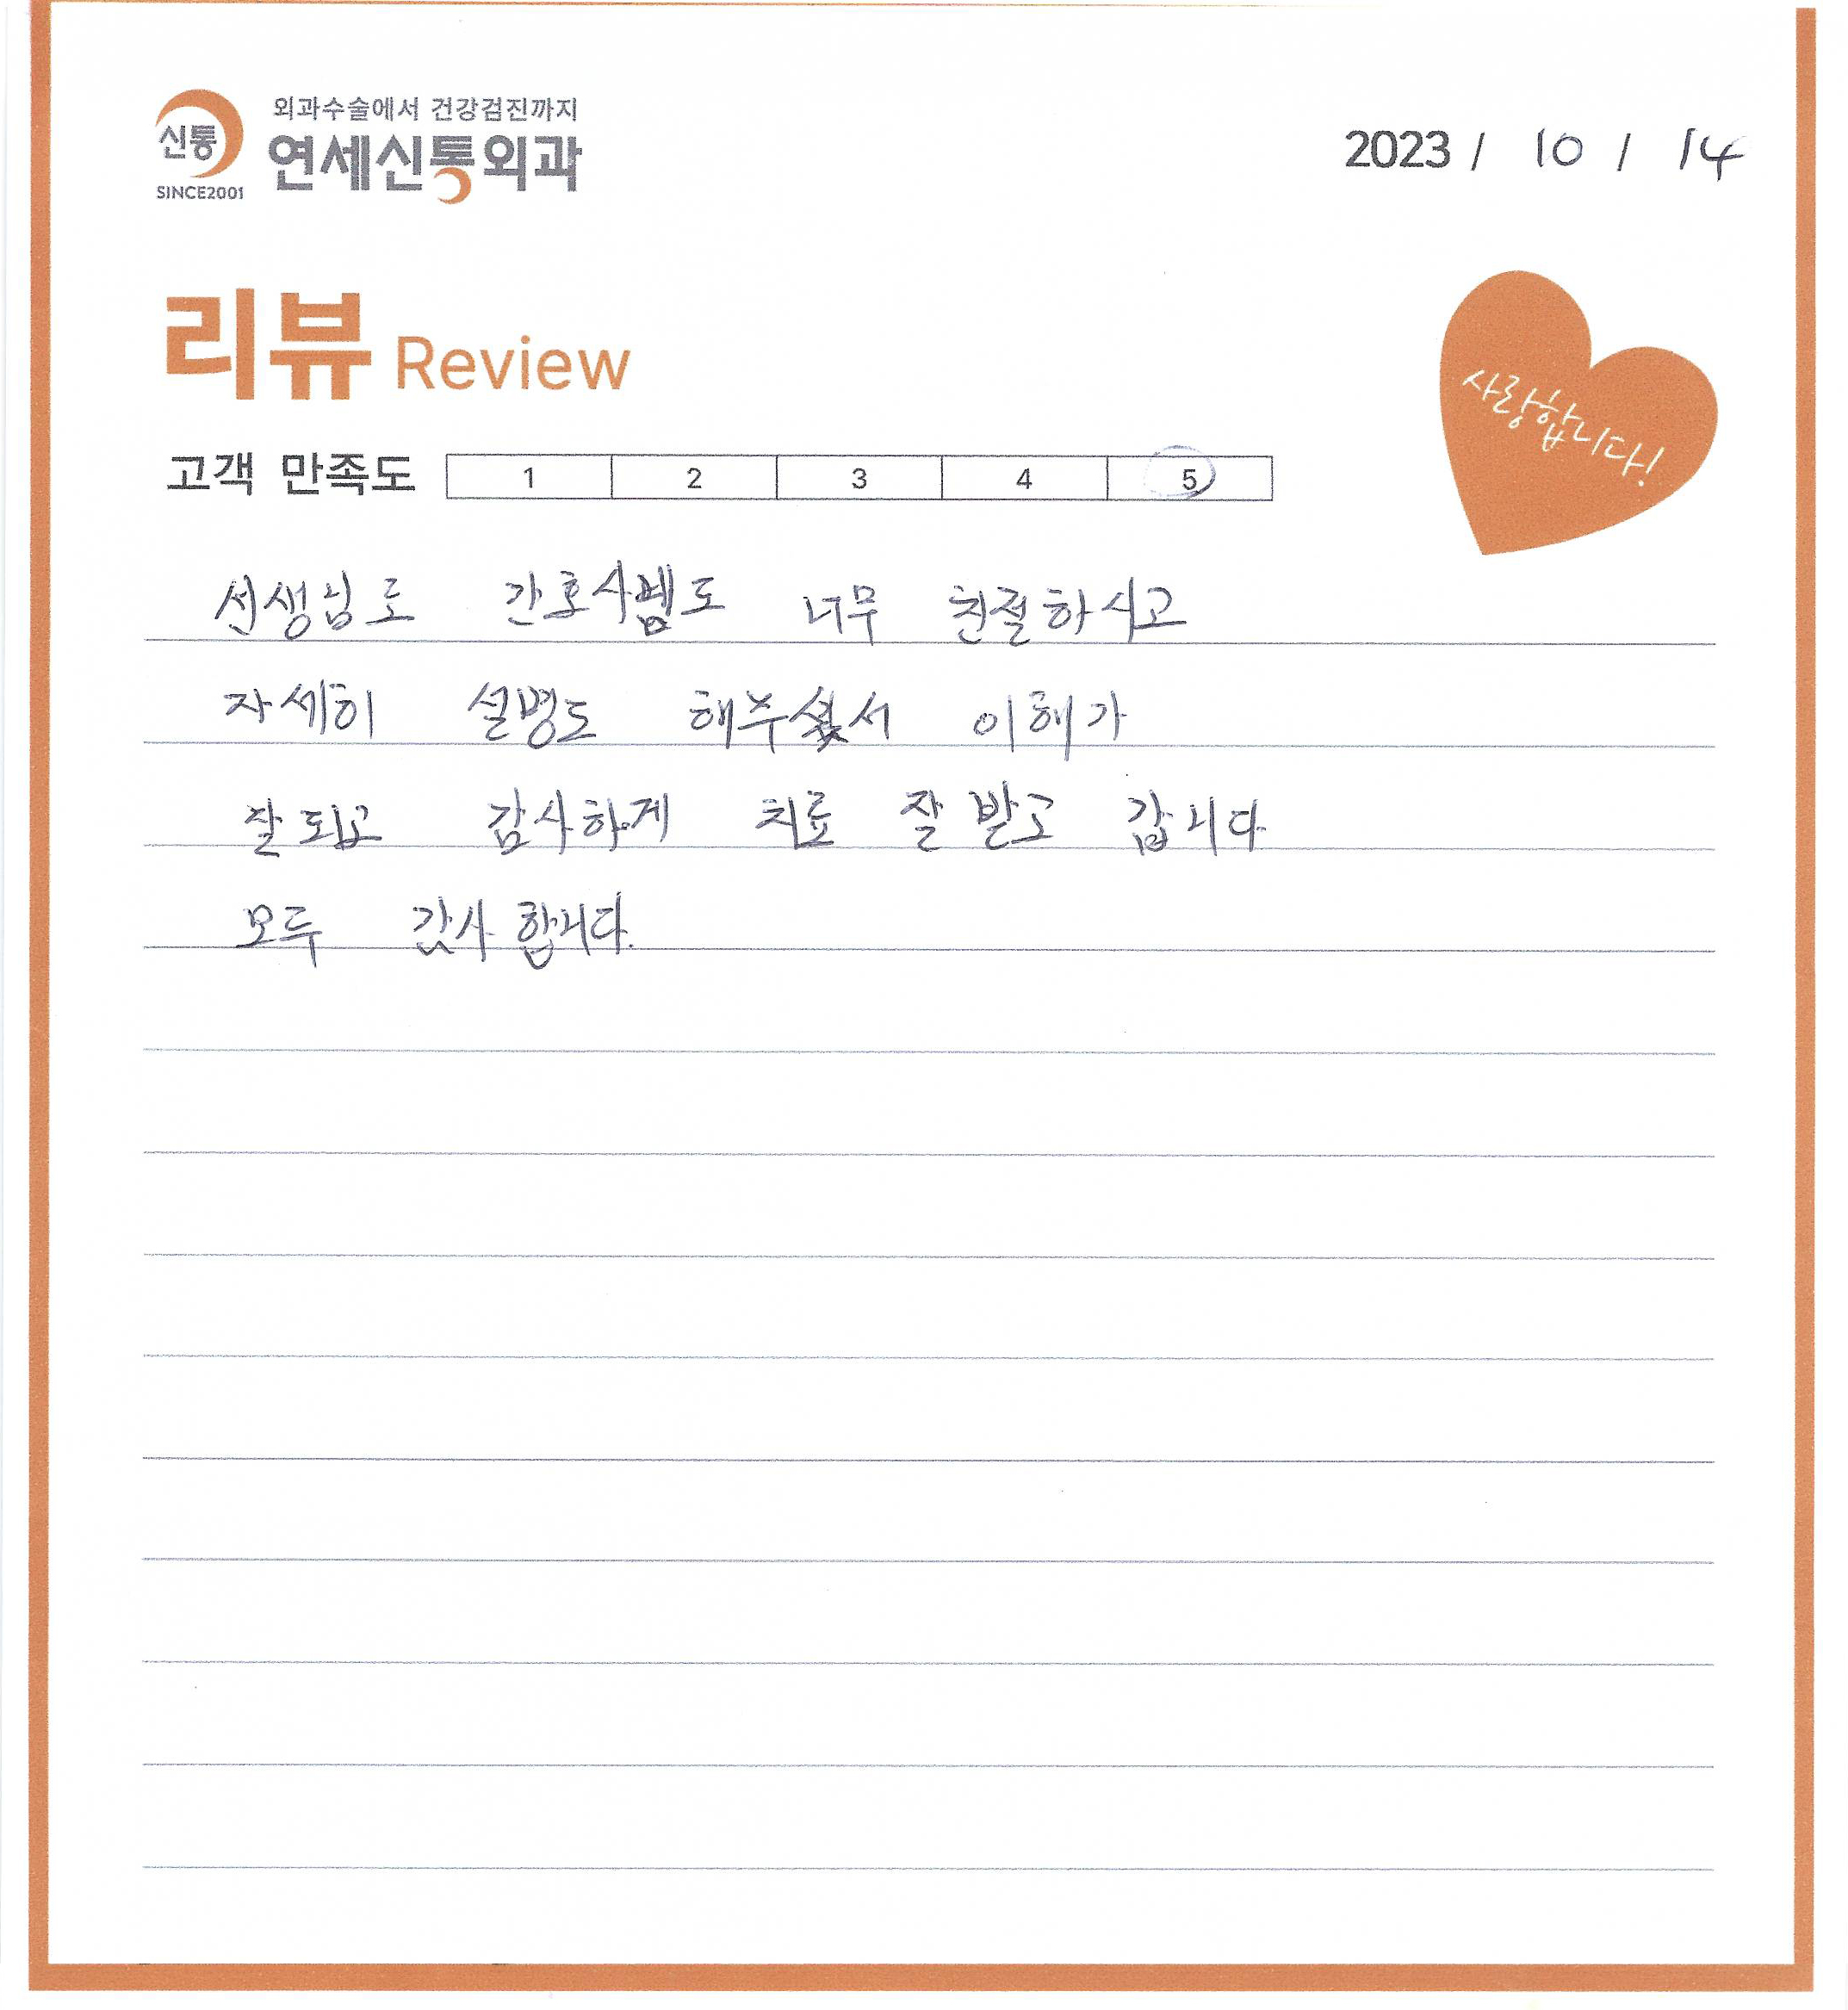 외과수술에서 건강검진까지
신통 연세신통외과
SINCE2001
2023 / 10 / 14
리뷰 Review
사랑합니다!
고객 만족도 1 2 3 4 5
선생님도 간호사쌤도 너무 친절하시고
자세히 설명도 해주셨서 이해가
잘되고 감사하게 치료 잘 받고 갑니다
모두 감사합니다.